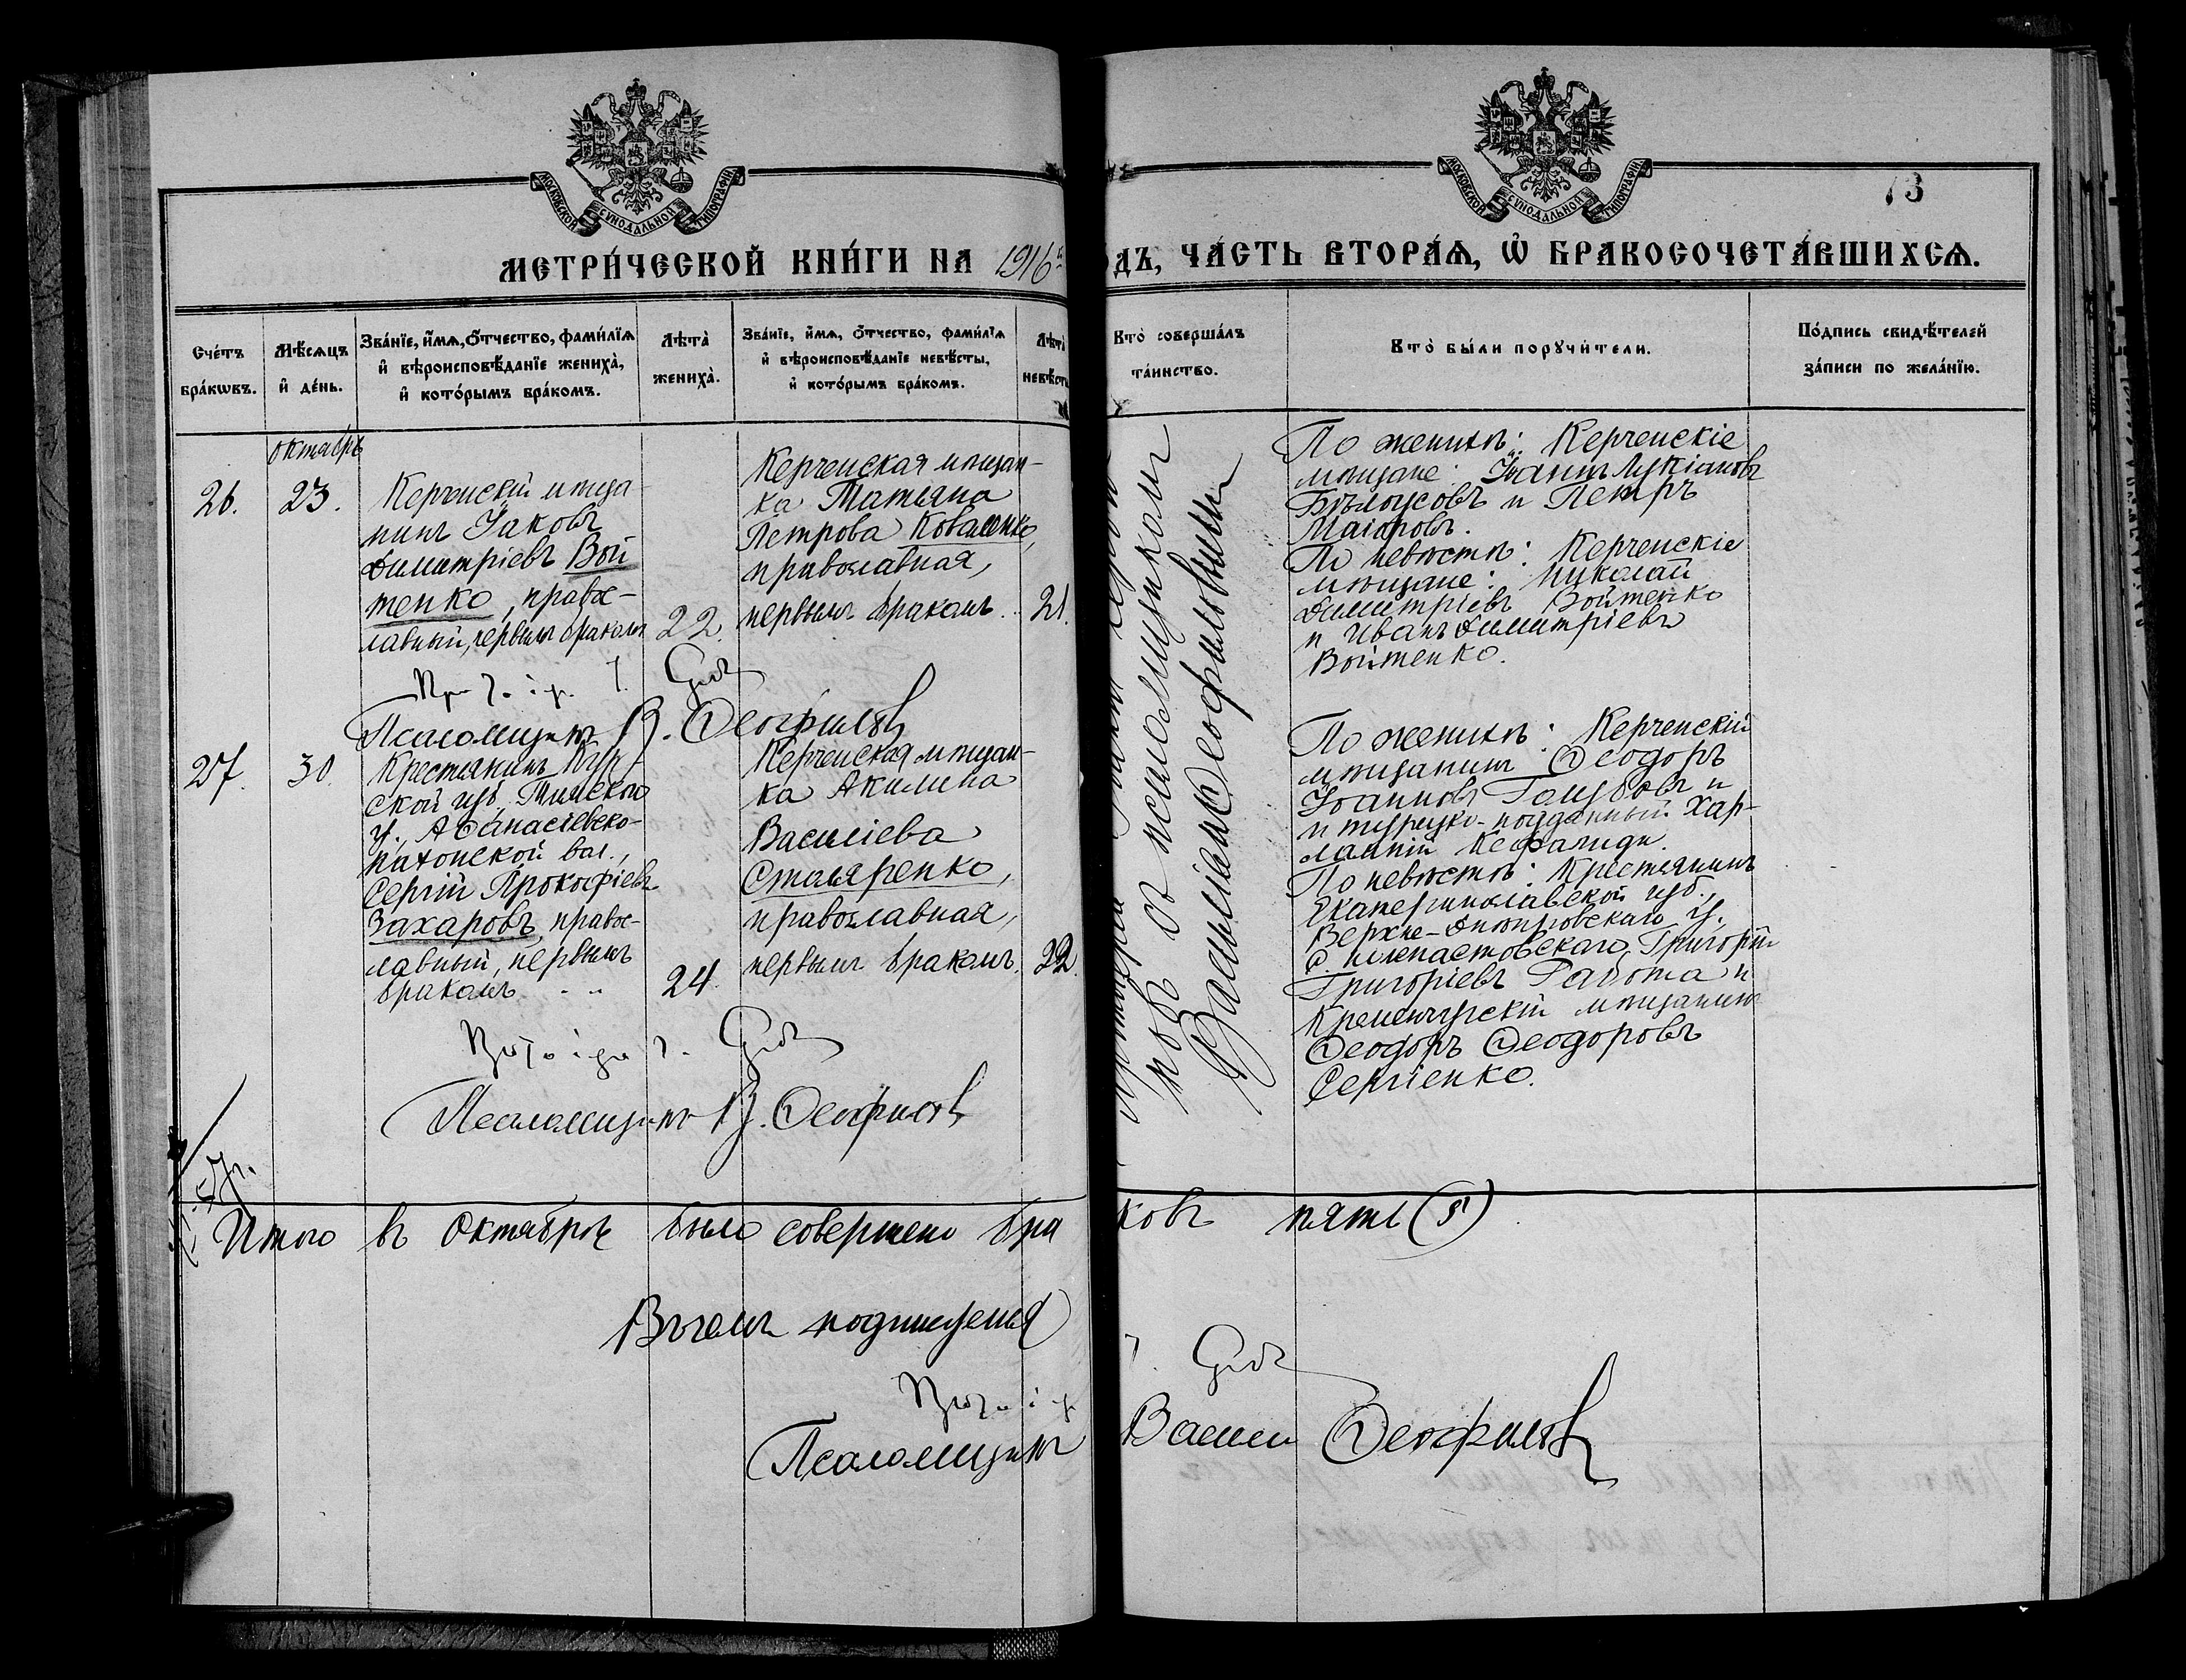 МОСКОВСКОЙ СѴНОДАЛЬНОЙ ТИПОГРАФІИ
МОСКОВСКОЙ СѴНОДАЛЬНОЙ ТИПОГРАФІИ
13
МЕТРИ́ЧЕСКОЙ КНИ́ГИ НА 1916й
ДЪ, ЧА́СТЬ ВТОРА́Ѧ, Ѽ БРАКОСОЧЕТА́ВШИХСѦ.
Сче́тъ бра́кѡвъ.
Мѣ́сѧцъ и҆ де́нь.
Зва́нїе, и҆́мѧ, ѻ҆́тчество, фами́лїѧ
и҆ вѣроисповѣ́данїе жениха̀,
и҆ кото́рымъ бра́комъ.
Лѣта̀ жениха̀.
Зва́нїе, и҆́мѧ, ѻ҆́тчество, фами́лїѧ
и҆ вѣроисповѣ́данїе невѣ́сты,
и҆ кото́рымъ бра́комъ.
Лѣта̀ невѣ́сты
Кто̀ соверша́лъ
та́инство.
Кто̀ бы́ли порꙋчи́тели.
По́дпись свидѣ́телей
за́писи по жела́нїю.
Октябрь
26.
23.
Керченскій мѣща-
нинъ Іаковъ
Димитріевъ Вой
тенко, правос-
лавный, первымъ бракомъ
22.
Керченская мѣщан-
ка Татьяна
Петрова Коваленко,
православная,
первымъ бракомъ.
21.
По женихѣ: Керченскіе
мѣщане: Іоаннъ Лукіановъ
Бѣлоусовъ и Петръ
Маіоровъ.
По невѣстѣ: Керченскіе
мѣщане: Николай
Димитріевъ Войтенко
и Иванъ Димитріевъ
Войтенко.
Псаломщикъ В. Ѳеофиловъ
27.
30.
Крестьянинъ Кур
ской губ. Тимской
у., Аѳанасіевско-
Пахонской вол.,
Сергій Прокофіевъ
Захаровъ, правос-
лавный, первымъ
бракомъ
24.
Керченская мѣщан-
ка Акилина
Василіева
Столяренко,
православная,
первымъ бракомъ.
22.
По женихѣ: Керченскій
мѣщанинъ Ѳеодоръ
Іоанновъ Голубовъ и
и турецко-подданный Хар-
лампій Кефалиди.
По невѣстѣ: Крестьянинъ
Екатеринославской губ.,
Верхне-Днѣпровскаго у.
Григорій
Григоріевъ Работа и
Кременчугскій мѣщанинъ
Ѳеодоръ Ѳеодоровъ
Сергіенко.
съ псаломщикомъ
Василіемъ Ѳеофиловымъ
Псаломщикъ В. Ѳеофиловъ
Итого въ Октябрѣ было совершено бра
ковъ пять (5)
Въ чемъ подписуемся
Псаломщикъ
Василій Ѳеофиловъ